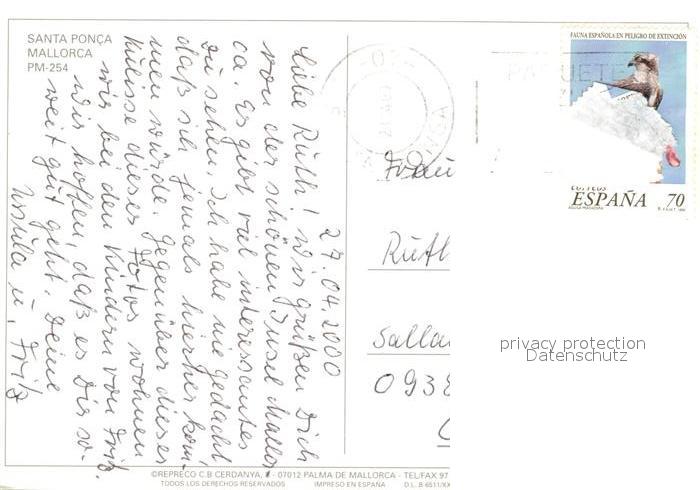 SANTA PONÇA
MALLORCA
PM-254
27.04.2000
Liebe Ruth! Wir grüßen Dich
von der schönen Insel Mallor
ca. Es gibt viel interessantes
zu sehen. Ich habe nie gedacht
daß ich jemals hierher kom-
men würde. Gegenüber dieses
Küleisse dieses Fotos wohnen
wir bei den Kindern von Fritz.
Wir hoffen, daß es Dir so-
weit gut geht. Deine
Ursula u. Fritz
Frau
Ruth
Salla
0938
FAUNA ESPAÑOLA EN PELIGRO DE EXTINCIÓN
CORREOS
ESPAÑA 70
PAQUETE
privacy protection
Datenschutz
©REPRECO C.B CERDANYA, - 07012 PALMA DE MALLORCA - TEL/FAX 97
TODOS LOS DERECHOS RESERVADOS IMPRESO EN ESPAÑA D.L. B 6511/XX